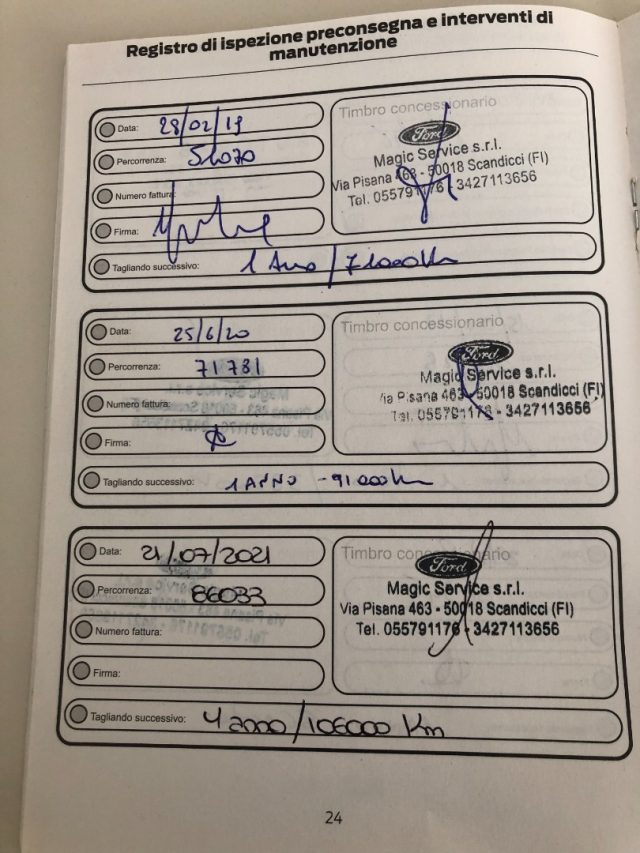 Registro di ispezione preconsegna e interventi di
manutenzione
Data: 28/02/19
Percorrenza: 51070
Numero fattura:
Firma:
Tagliando successivo: 1 Anno / 71000 Km
Timbro concessionario
Ford
Magic Service s.r.l.
Via Pisana 463 - 50018 Scandicci (FI)
Tel. 055791176 - 3427113656
Data: 25/6/20
Percorrenza: 71781
Numero fattura:
Firma:
Tagliando successivo: 1 ANNO - 91000 Km
Timbro concessionario
Ford
Magic Service s.r.l.
Via Pisana 463 - 50018 Scandicci (FI)
Tel. 055791176 - 3427113656
Data: 21/07/2021
Percorrenza: 86033
Numero fattura:
Firma:
Tagliando successivo: 1 anno / 106000 Km
Timbro concessionario
Ford
Magic Service s.r.l.
Via Pisana 463 - 50018 Scandicci (FI)
Tel. 055791176 - 3427113656
24